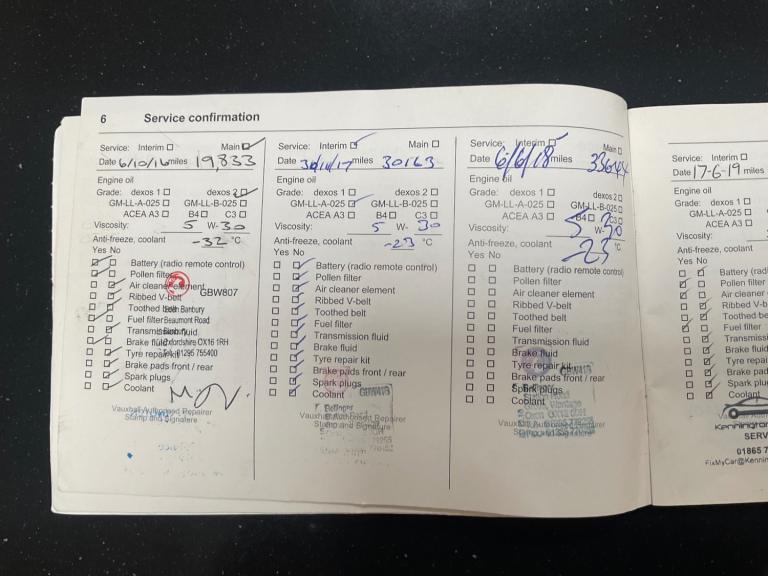 6 Service confirmation
Service: Interim Main
Date 6/10/16 miles 19,833
Engine oil
Grade: dexos 1 dexos 2
GM-LL-A-025 GM-LL-B-025
ACEA A3 B4 C3
Viscosity: 5 W-30
Anti-freeze, coolant -32 °C
Yes No
Battery (radio remote control)
Pollen filter
Air cleaner element
GBW807
Ribbed V-belt
Toothed belt
Banbury
Fuel filter
Beaumont Road
Transmission fluid
Banbury
Brake fluid
Oxfordshire OX16 1RH
Tyre repair kit
Tel: 01295 755400
Brake pads front / rear
Spark plugs
Coolant
Vauxhall Authorised Repairer
Stamp and Signature
Service: Interim Main
Date 30/11/17 miles 30163
Engine oil
Grade: dexos 1 dexos 2
GM-LL-A-025 GM-LL-B-025
ACEA A3 B4 C3
Viscosity: 5 W- 30
Anti-freeze, coolant -23 °C
Yes No
Battery (radio remote control)
Pollen filter
Air cleaner element
Ribbed V-belt
Toothed belt
Fuel filter
Transmission fluid
Brake fluid
Tyre repair kit
Brake pads front / rear
Spark plugs
Coolant
Vauxhall Authorised Repairer
Stamp and Signature
Service: Interim Main
Date 6/6/18 miles
Engine oil
Grade: dexos 1 dexos 2
GM-LL-A-025 GM-LL-B-025
ACEA A3 B4 C3
Viscosity: 5 W-30
Anti-freeze, coolant 25 °C
Yes No
Battery (radio remote control)
Pollen filter
Air cleaner element
Ribbed V-belt
Toothed belt
Fuel filter
Transmission fluid
Brake fluid
Tyre repair kit
Brake pads front / rear
Spark plugs
Coolant
Vauxhall Authorised Repairer
Stamp and Signature
Service: Interim
Date 17-6-19 miles
Engine oil
Grade: dexos 1
GM-LL-A-025
ACEA A3
Viscosity:
Anti-freeze, coolant
Yes No
Battery (radi
Pollen filter
Air cleaner
Ribbed V-b
Toothed be
Fuel filter
Transmiss
Brake fluid
Tyre repai
Brake pad
Spark plu
Coolant
Kennington
SERV
01865 7
FixMyCar@Kennin